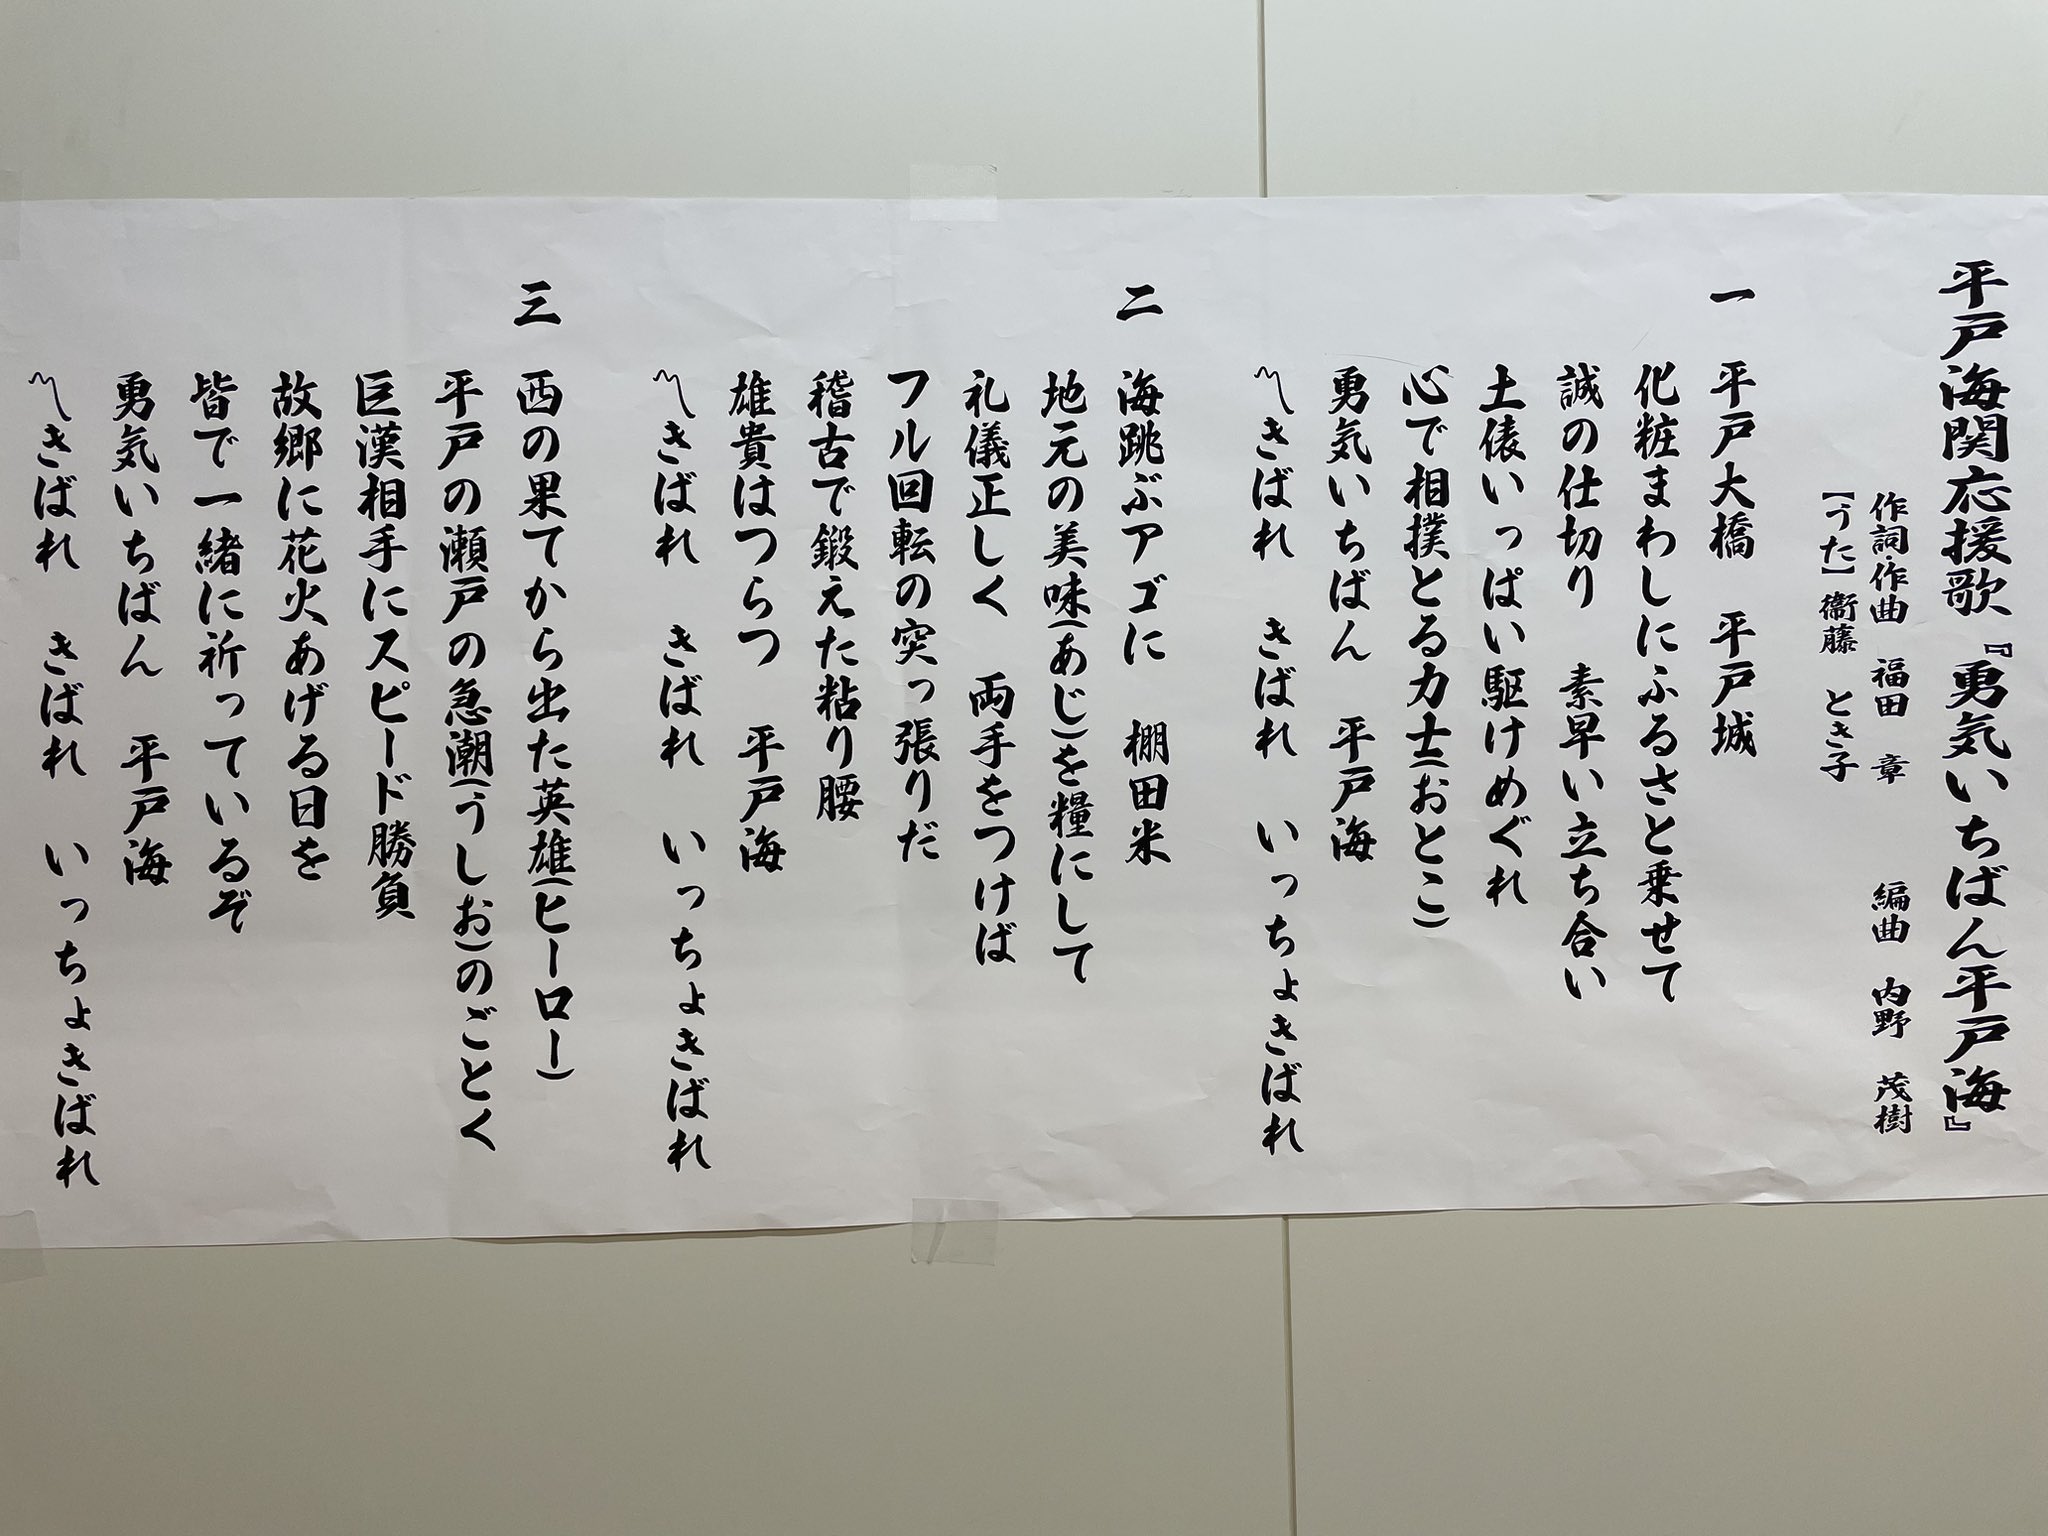 平戸海関応援歌『勇気いちばん平戸海』
作詞・作曲　福田　章　　編曲　内野　茂樹
【うた】衞藤　とき子
一　平戸大橋　平戸城
化粧まわしにふるさと乗せて
誠の仕切り　素早い立ち合い
土俵いっぱい駆けめぐれ
心で相撲とる力士(おとこ)
勇気いちばん　平戸海
〽きばれ　きばれ　いっちょきばれ
二　海跳ぶアゴに　棚田米
地元の美味(あじ)を糧にして
礼儀正しく　両手をつけば
フル回転の突っ張りだ
稽古で鍛えた粘り腰
雄貴はつらつ　平戸海
〽きばれ　きばれ　いっちょきばれ
三　西の果てから出た英雄(ヒーロー)
平戸の瀬戸の急潮(うしお)のごとく
巨漢相手にスピード勝負
故郷に花火あげる日を
皆で一緒に祈っているぞ
勇気いちばん　平戸海
〽きばれ　きばれ　いっちょきばれ